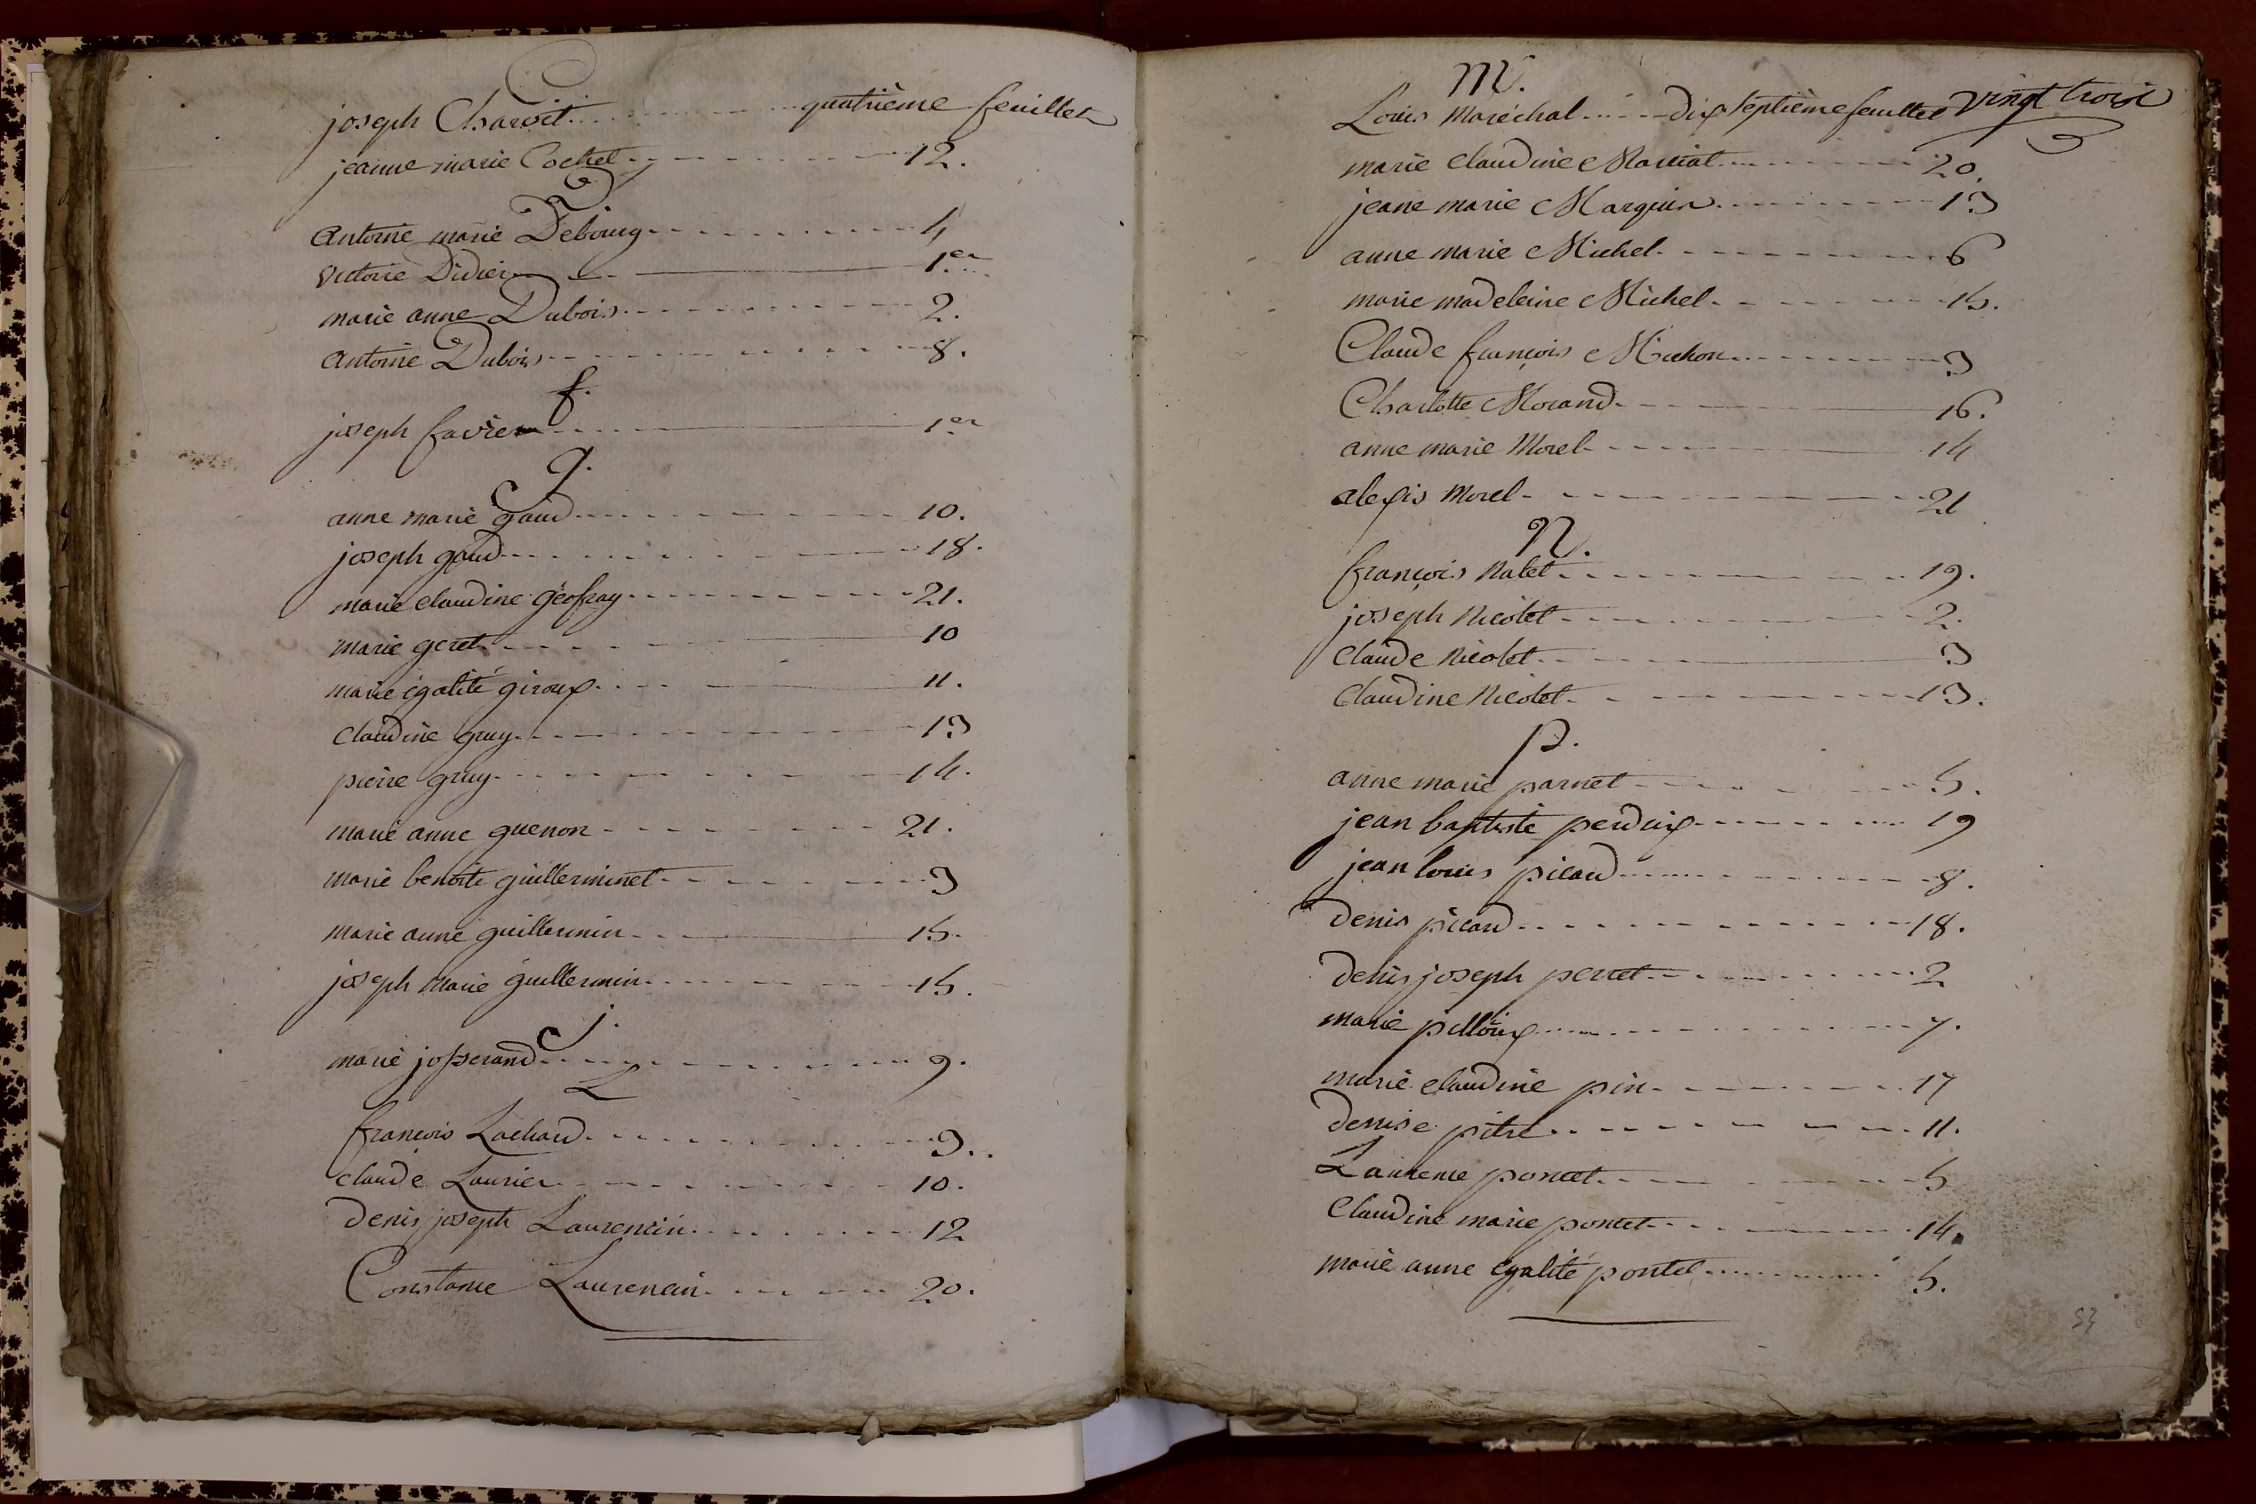 C
joseph Charvet ........ quatrième feuillet
jeanne marie Cochet ........ 12.
D
antoine marie Debourg ........ 4
victoire Didier ........ 1.er
marie anne Dubois ........ 2.
antoine Dubois ........ 8.
f.
joseph favier ........ 1er
g.
anne marie gaud ........ 10.
joseph gaud ........ 18.
marie claudine géofray ........ 21.
marie geret ........ 10
marie égalité giroux ........ 11.
claudine gruy ........ 13
pierre gruy ........ 14.
marie anne guenon ........ 21.
marie benoite guillerminet ........ 3
marie anne guillermin ........ 15.
joseph marie guillermin ........ 15.
j.
marie josserand ........ 9.
L
françois Lachaud ........ 9..
claude Laurier ........ 10.
Denis joseph Laurencin ........ 12
Constance Laurencin ........ 20.
M.
Louis Maréchal ........ dix septième feuillet vingt trois
marie claudine Marciat ........ 20.
jeane marie Marguin ........ 13
anne marie Michel ........ 6
marie madeleine Michel ........ 15.
Claude françois Michon ........ 3
Charlotte Morand ........ 16.
anne marie Morel ........ 14
alexis Morel ........ 21
N.
françois Nalet ........ 19.
joseph Nicolet ........ 2.
Claude Nicolet ........ 3
Claudine Nicolet ........ 13.
p.
anne marie parnet ........ 5.
jean baptiste perdrix ........ 19
jean louis picard ........ 8.
denis picard ........ 18.
denis joseph perret ........ 2
marie pilloux ........ 7.
marie claudine pin ........ 17
denise pitre ........ 11.
Laurence poncet ........ 5
Claudine marie poncet ........ 14.
marie anne égalité pontet ........ 5.
23